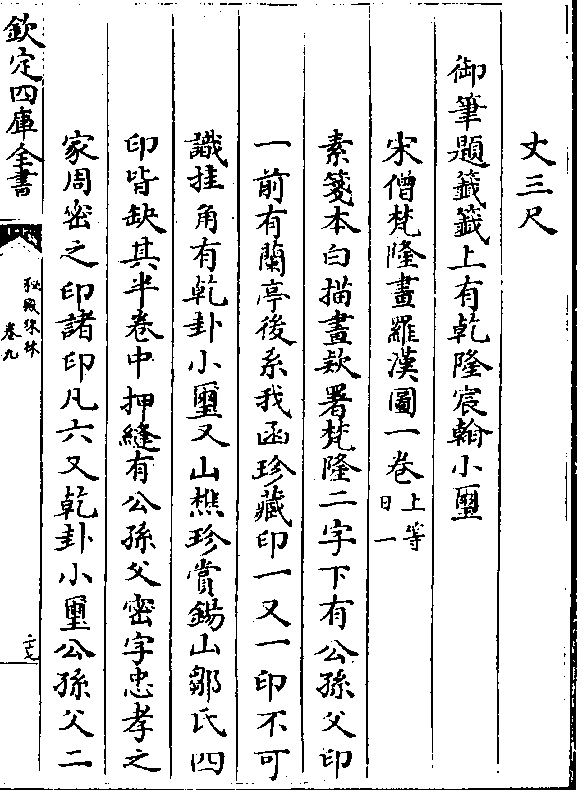 丈三尺
御筆題籤籤上有乾隆宸翰小璽
宋僧梵隆畫羅漢圖一卷上等日一
素箋本白描畫款署梵隆二字下有公孫父印
一前有蘭亭後系我函珍藏印一又一印不可
識挂角有乾卦小璽又山樵珍賞錫山鄒氏四
印皆缺其半卷中押縫有公孫父密字忠孝之
家周密之印諸印凡六又乾卦小璽公孫父二
欽定四庫全書
秘殿珠林
卷九